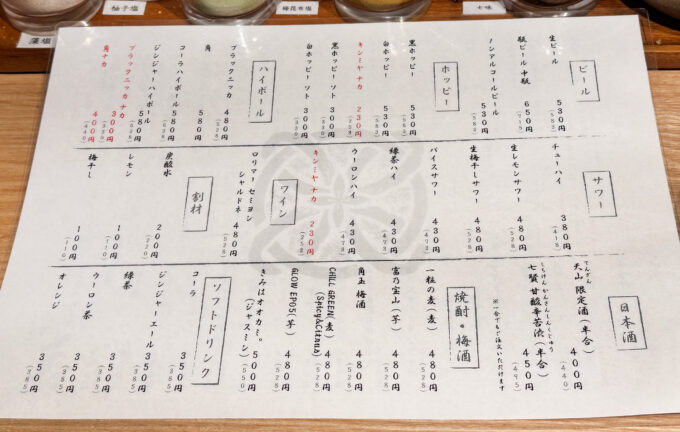 藻塩
柚子塩
梅昆布塩
七味
ビール
生ビール 530円 (583)
瓶ビール 中瓶 650円 (715)
ノンアルコールビール 530円 (583)
ホッピー
黒ホッピー 530円 (583)
白ホッピー 530円 (583)
キンミヤ ナカ 230円 (253)
黒ホッピー ソト 300円 (330)
白ホッピー ソト 300円 (330)
ハイボール
ブラックニッカ 480円 (528)
角 580円
コーラハイボール 580円
ジンジャーハイボール 580円
ブラックニッカ ナカ 300円 (330)
角 ナカ 400円 (440)
サワー
チューハイ 380円 (418)
生レモンサワー 480円 (528)
生梅干しサワー 480円 (528)
バイスサワー 430円 (473)
緑茶ハイ 430円 (473)
ウーロンハイ 430円 (473)
キンミヤ ナカ 230円 (253)
ワイン
ロリマー セミヨン シャルドネ 480円 (528)
割材
炭酸水 200円 (220)
レモン 100円 (110)
梅干し 100円 (110)
日本酒
てんざん
天山 限定酒(半合) 400円 (440)
しちけん かんさんしんくじゅう
七賢 甘酸辛苦渋(半合) 450円 (495)
※一合でもご注文いただけます
焼酎・梅酒
一粒の麦(麦) 480円 (528)
富乃宝山(芋) 480円 (528)
角玉梅酒 480円 (528)
CHILL GREEN(麦) 480円
(Spicy&Citrus) (528)
GLOW EP05(芋) 480円 (528)
きみはオオカミ。 500円
(ジャスミン) (550)
ソフトドリンク
コーラ 350円 (385)
ジンジャーエール 350円 (385)
緑茶 350円 (385)
ウーロン茶 350円 (385)
オレンジ 350円 (385)